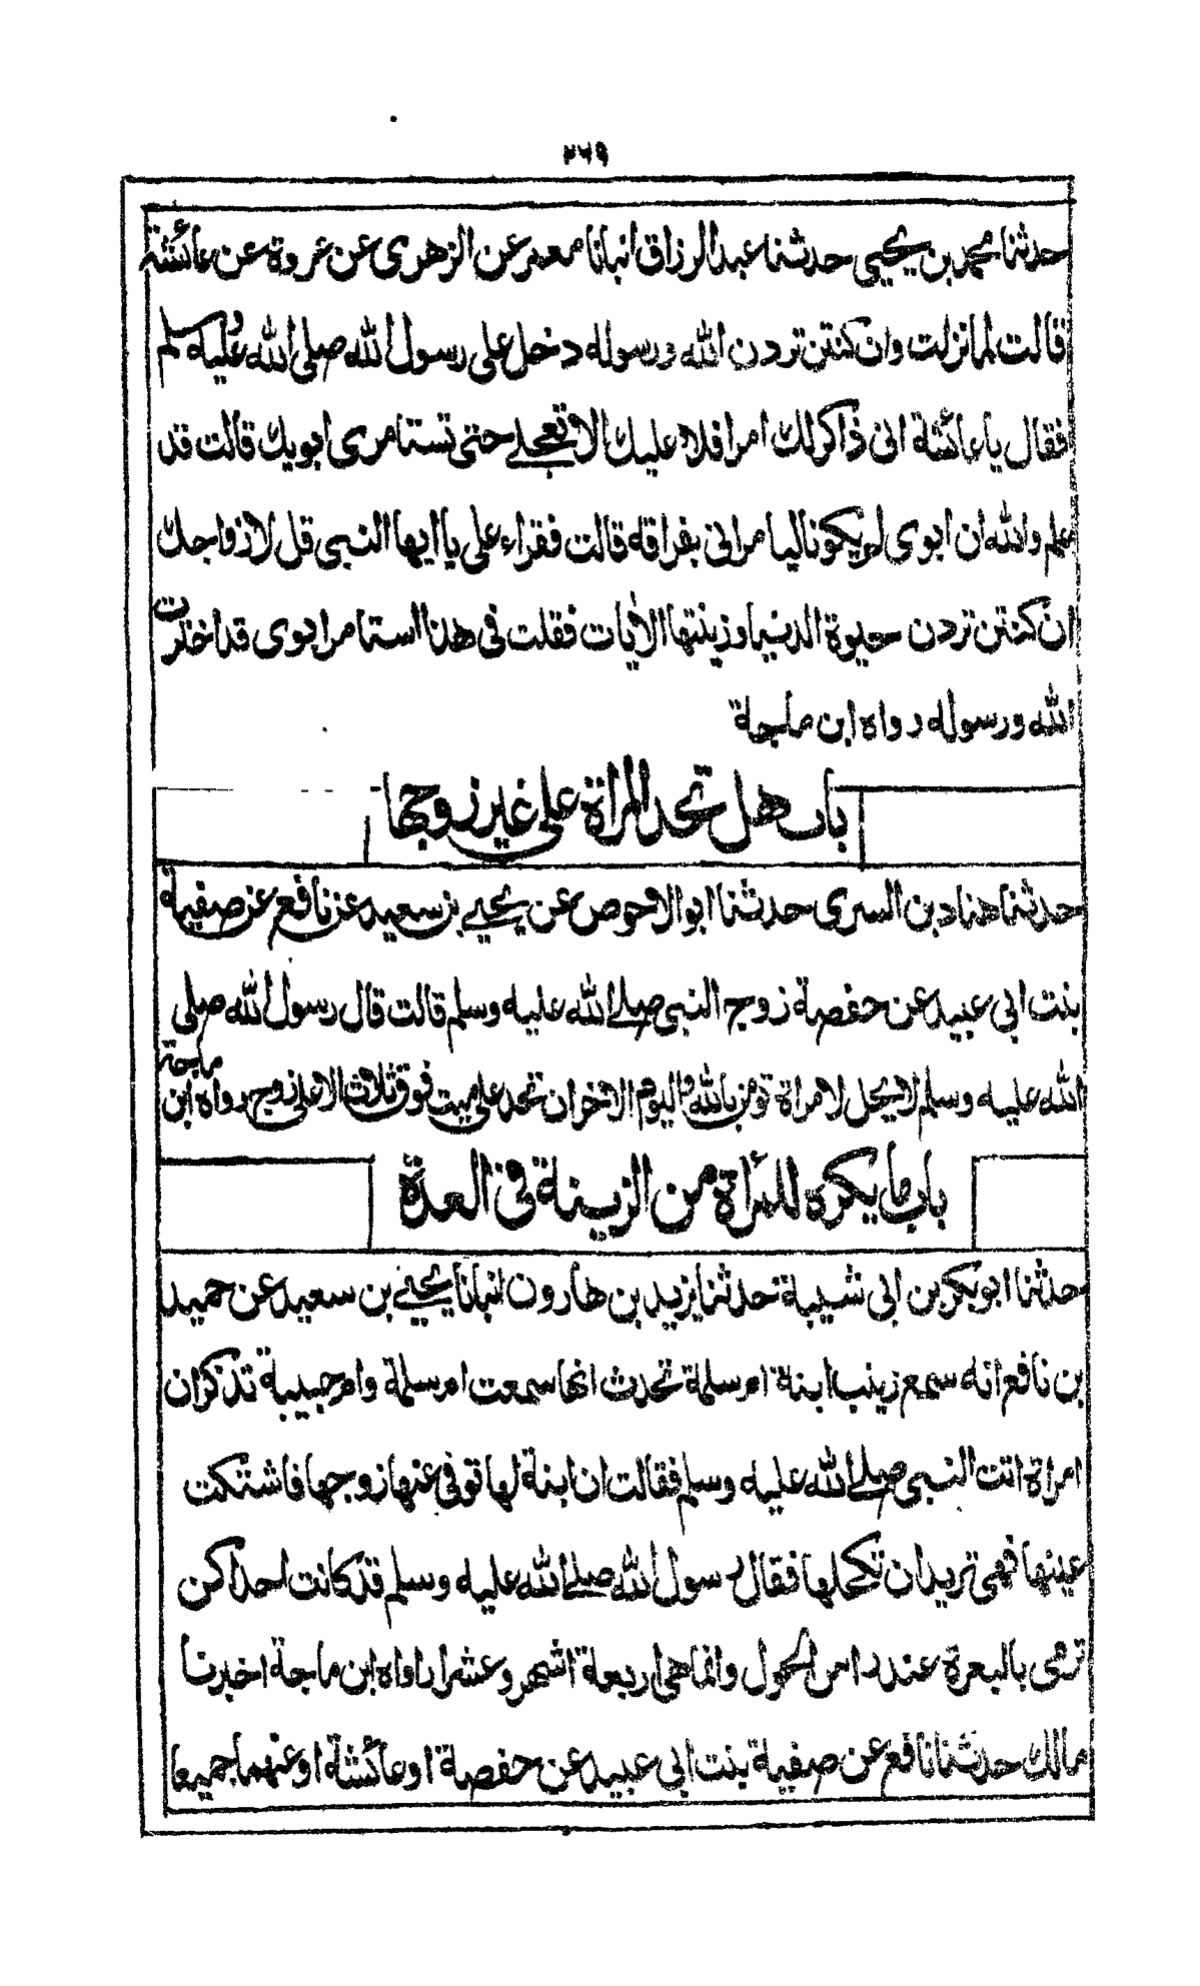 ٢٦٩
حدثنا محمد بن يحيى حدثنا عبد الرزاق انبانا معمر عن الزهرى عن عروة عن عائشة
قالت لما نزلت وان كنتن تردن الله ورسوله دخل على رسول الله صلى الله عليه وسلم
فقال يا عائشة انى ذاكر لك امرا فلا عليك الا تعجلى حتى تستامرى ابويك قالت قد
علم والله ان ابوى لم يكونا ليامرانى بفراقه قالت فقراء على يا ايها النبى قل لازواجك
ان كنتن تردن حيوة الدنيا وزينتها الايات فقلت فى هذا استامر ابوى قد اخترت
الله ورسوله رواه ابن ماجة
باب هل تحد المراة على غير زوجها
حدثنا هناد بن السرى حدثنا ابو الاحوص عن يحيى بن سعيد عن نافع عن صفية
بنت ابى عبيد عن حفصة زوج النبى صلى الله عليه وسلم قالت قال رسول الله صلى
الله عليه وسلم لا يحل لامراة تومن بالله واليوم الاخر ان تحد على ميت فوق ثلاث الا على زوج رواه ابن ماجة
باب ما يكره للمرأة من الزينة فى العدة
حدثنا ابو بكر بن ابى شيبة حدثنا يزيد بن هارون انبانا يحيى بن سعيد عن حميد
بن نافع انه سمع زينب ابنة ام سلمة تحدث انها سمعت ام سلمة وام حبيبة تذكران
امراة اتت النبى صلى الله عليه وسلم فقالت ان ابنة لها توفى عنها زوجها فاشتكت
عينها فهى تريد ان تكحلها فقال رسول الله صلى الله عليه وسلم قد كانت احداكن
ترمى بالبعرة عند راس الحول وانما هى اربعة اشهر وعشرا رواه ابن ماجة اخبرنا
مالك حدثنا نافع عن صفية بنت ابى عبيد عن حفصة او عائشة او عنهما جميعا